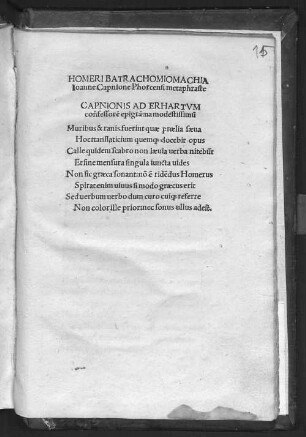 15
HOMERI BATRACHOMIOMACHIA
Ioanne Capnione Phorcensi metaphraste
CAPNIONIS AD ERHARTVM
cōfessorē epigrāma modestissimū
Muribus & ranis fuerint quæ prælia sæua
Hoc translaticium quemq; docebit opus
Calle quidem scabro non læuia uerba nitebūt
Et sine mensura singula iuncta uides
Non sic græca sonant nō ē ridēdus Homerus
Spirat enim uiuus si modo græcus erit
Sed uerbum uerbo dum curo cuiq; referre
Non color ille prior nec sonus ullus adest.